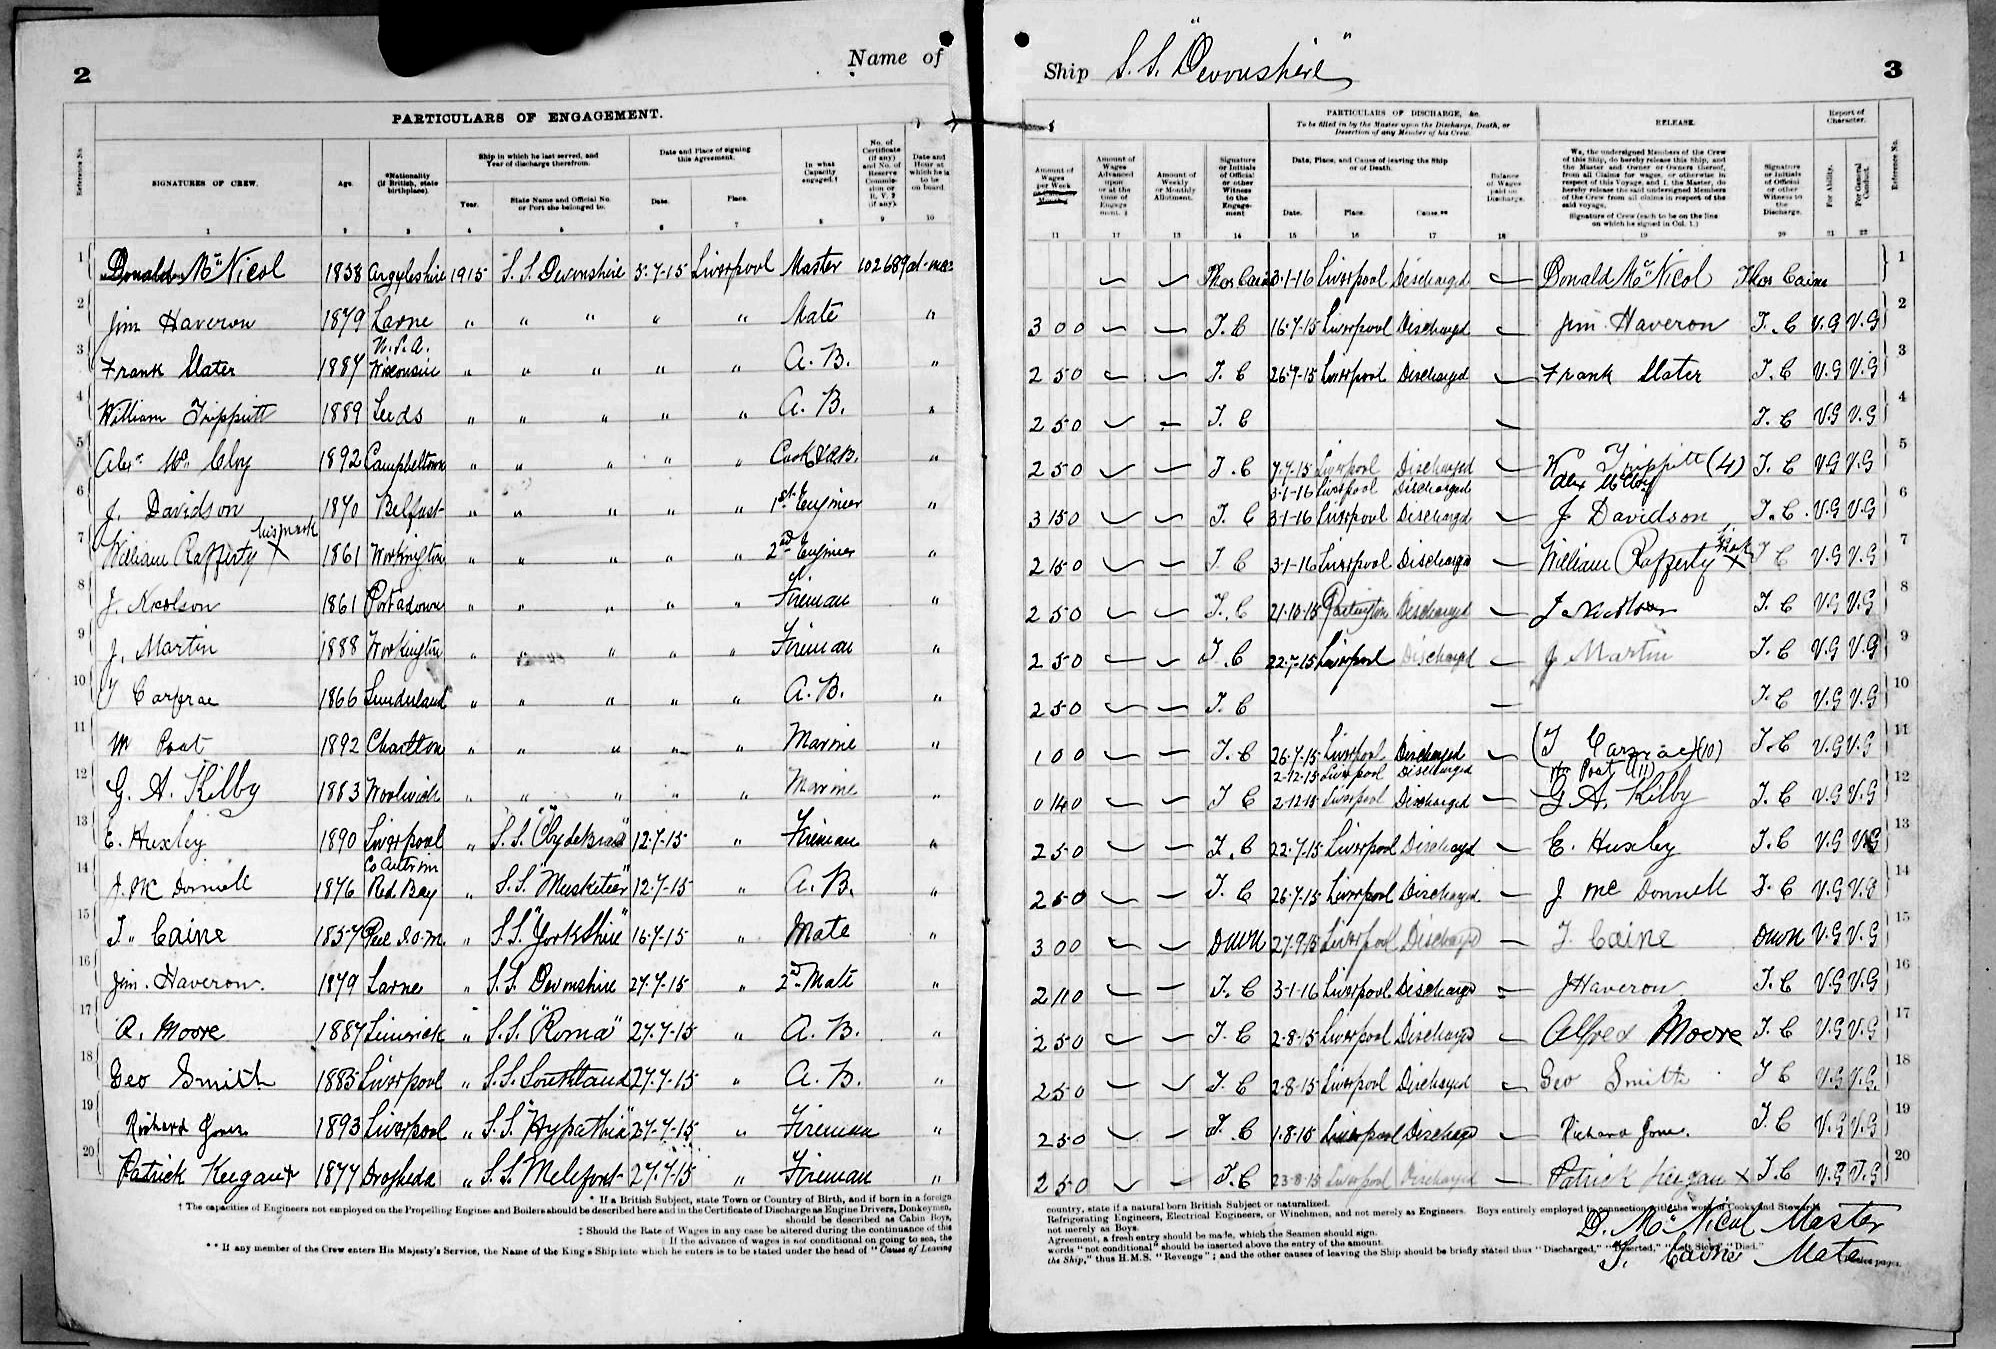 2
Name of
PARTICULARS OF ENGAGEMENT.
Reference No.
SIGNATURES OF CREW.
Age.
*Nationality (if British, state birthplace).
Ship in which he last served, and Year of discharge therefrom.
Year.
State Name and Official No. or Port she belonged to.
Date and Place of signing this Agreement.
Date.
Place.
In what Capacity engaged.†
No. of Certificate (if any) and No. of Reserve Commission or R. V. 2 (if any).
Date and Hour at which he is to be on board.
1 2 3 4 5 6 7 8 9 10
1 Donald McNicol 1858 Argyleshire 1915 S.S. Devonshire 5.7.15 Liverpool Master 102689 at once
2 Jim Haveron 1879 Larne " " " " " Mate "
U.S.A.
3 Frank Slater 1887 Wisconsin " " " " " A.B. "
4 William Trippitt 1889 Leeds " " " " " A.B. "
5 Alex McCloy 1892 Campbeltown " " " " " Cook & A.B. "
6 J. Davidson 1870 Belfast " " " " " 1st Engineer "
his mark
7 William Rafferty X 1861 Workington " " " " " 2nd Engineer "
8 J. Nicolson 1861 Portadown " " " " " Fireman "
9 J. Martin 1888 Workington " " " " " Fireman "
10 T Carfrae 1866 Sunderland " " " " " A.B. "
11 W Post 1892 Charlton " " " " " Marine "
12 G. A. Kilby 1883 Woolwich " " " " " Marine "
13 E. Huxley 1890 Liverpool " S.S. "Clydebrae" 12.7.15 " Fireman "
Co Antrim
14 J. McDonnell 1876 Red Bay " S.S. "Musketeer" 12.7.15 " A.B. "
15 T. Caine 1857 Peel I.O.M. " S.S. "Yorkshire" 16.7.15 " Mate "
16 Jim. Haveron. 1879 Larne " S.S. Devonshire 27.7.15 " 2nd Mate "
17 A. Moore 1887 Limerick " S.S. "Roma" 27.7.15 " A.B. "
18 Geo Smith 1885 Liverpool " S.S. Southland 27.7.15 " A.B. "
19 Richard Jones 1893 Liverpool " S.S. "Hypathia" 27.7.15 " Fireman "
20 Patrick Keegan X 1877 Drogheda " S.S. Melifont 27.7.15 " Fireman "
* If a British Subject, state Town or Country of Birth, and if born in a foreign
† The capacities of Engineers not employed on the Propelling Engines and Boilers should be described here and in the Certificate of Discharge as Engine Drivers, Donkeymen,
should be described as Cabin Boys,
‡ Should the Rate of Wages in any case be altered during the continuance of the
‖ If the advance of wages is not conditional on going to sea, the
** If any member of the Crew enters His Majesty's Service, the Name of the King's Ship into which he enters is to be stated under the head of "Cause of Leaving
Ship "S.S. Devonshire"
3
Amount of Wages per Week
Amount of Wages Advanced upon or at the time of Engagement. ‡
Amount of Weekly or Monthly Allotment.
Signature or Initials of Official or other Witness to the Engagement
PARTICULARS OF DISCHARGE, &c.
To be filled in by the Master upon the Discharge, Death, or Desertion of any Member of his Crew.
Date, Place, and Cause of leaving the Ship or of Death.
Date.
Place.
Cause.**
Balance of Wages paid on Discharge.
RELEASE.
We, the undersigned Members of the Crew of this Ship, do hereby release this Ship, and the Master and Owner or Owners thereof, from all Claims for wages, or otherwise in respect of this Voyage, and I, the Master, do hereby release the said undersigned Members of the Crew from all claims in respect of the said voyage.
Signature of Crew (each to be on the line on which he signed in Col. 1.)
Signature or Initials of Official or other Witness to the Discharge.
Report of Character.
For Ability.
For General Conduct.
Reference No.
11 12 13 14 15 16 17 18 19 20 21 22
Thos Caine 3-1-16 Liverpool Discharged Donald McNicol Thos Caine 1
3 0 0 T. C 16.7.15 Liverpool Discharged Jim. Haveron T. C V.G V.G 2
2 5 0 T. C 26.7.15 Liverpool Discharged Frank Slater T. C V.G V.G 3
2 5 0 T. C T. C V.G V.G 4
2 5 0 T. C 7.7.15 Liverpool Discharged W Trippitt (4) T. C V.G V.G 5
3-1-16 Liverpool Discharged Alex McCloy
3 15 0 T. C 3-1-16 Liverpool Discharged J Davidson T. C V.G V.G 6
2 15 0 T. C 3-1-16 Liverpool Discharged William Rafferty X his mark T C V.G V.G 7
2 5 0 T. C 21.10.15 Partington Discharged J. Nicolson T. C V.G V.G 8
2 5 0 T. C 22.7.15 Liverpool Discharged J Martin T. C V.G V.G 9
2 5 0 T. C T. C V.G V.G 10
1 0 0 T. C 26.7.15 Liverpool Discharged (T Carfrae)(10) T. C V.G V.G 11
2-12-15 Liverpool Discharged W Post (11)
0 14 0 T C 2-12-15 Liverpool Discharged G A. Kilby T. C V.G V.G 12
2 5 0 T. C 22.7.15 Liverpool Discharged E. Huxley T. C V.G V.G 13
2 5 0 T. C 26.7.15 Liverpool Discharged J McDonnell T. C V.G V.G 14
3 0 0 DMN 27.9.15 Liverpool Discharged T. Caine DMN V.G V.G 15
2 11 0 T. C 3-1-16 Liverpool Discharged J Haveron T. C V.G V.G 16
2 5 0 T. C 2-8-15 Liverpool Discharged Alfred Moore T. C V.G V.G 17
2 5 0 T. C 2-8-15 Liverpool Discharged Geo Smith T C V.G V.G. 18
2 5 0 T. C 1.8.15 Liverpool Discharged Richard Jones. T. C V.G V.G 19
2 5 0 T. C 23-8-15 Liverpool Discharged Patrick Keegan X T. C V.G V.G 20
country, state if a natural born British Subject or naturalized.
Refrigerating Engineers, Electrical Engineers, or Winchmen, and not merely as Engineers. Boys entirely employed in connection with the work of Cooks and Stewards
not merely as Boys.
Agreement, a fresh entry should be made, which the Seamen should sign.
words "not conditional" should be inserted above the entry of the amount.
the Ship," thus H.M.S. "Revenge"; and the other causes of leaving the Ship should be briefly stated thus "Discharged," "Deserted," "Left Sick," "Died."
D. McNicol Master
T. Caine Mate